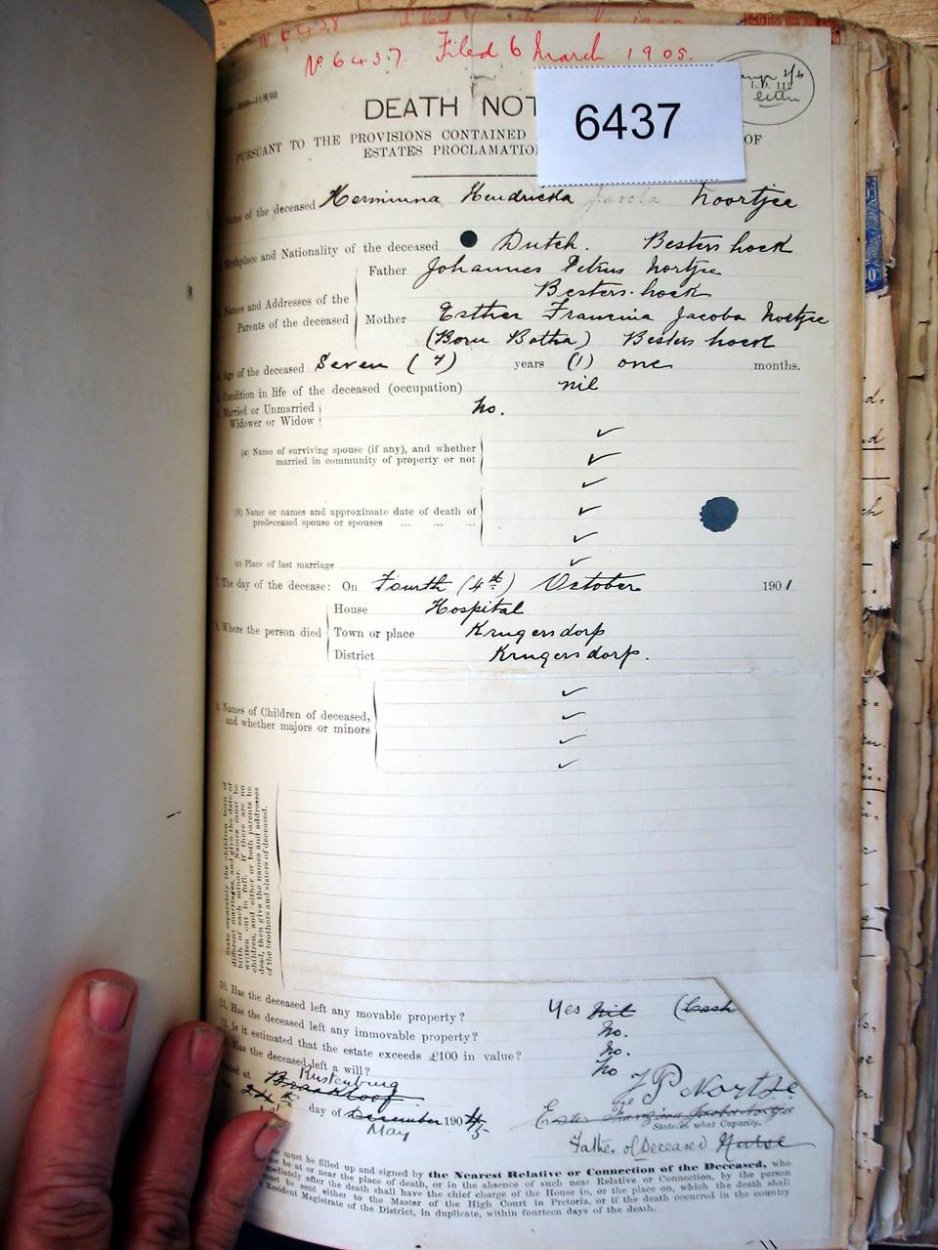 No 6437. Filed 6 March 1905.
6437
DEATH NOT
PURSUANT TO THE PROVISIONS CONTAINED OF
ESTATES PROCLAMATION
Name of the deceased Herminna Hendricka Noortjee
Birthplace and Nationality of the deceased Dutch. Besters hoek
Names and Addresses of the Parents of the deceased
Father Johannes Petrus Nortje
Besters-hoek
Mother Esther Francina Jacoba Nortje
(Born Botha) Besters hoek
Age of the deceased Seven (7) years (1) one months.
Condition in life of the deceased (occupation) nil
Married or Unmarried no.
Widower or Widow
(a) Name of surviving spouse (if any), and whether
married in community of property or not
(b) Name or names and approximate date of death of
predeceased spouse or spouses ... ... ...
(c) Place of last marriage
The day of the decease: On Fourth (4th) October 1901
Where the person died
House Hospital
Town or place Krugersdorp
District Krugersdorp.
Names of Children of deceased,
and whether majors or minors
State separately the children born of
different marriages, and give the date of
birth of each minor. Names must be
written out in full. If there are no
children, and either or both parents be
dead, then give the names and addresses
of the brothers and sisters of deceased.
10. Has the deceased left any movable property? Yes nil (Cash
11. Has the deceased left any immovable property? No.
Is it estimated that the estate exceeds £100 in value? No.
Has the deceased left a will? No
Rustenburg
J P Nortje
day of December 1904/5
May
State in what Capacity.
Father of Deceased Nurse
must be filled up and signed by the Nearest Relative or Connection of the Deceased, who
be at or near the place of death, or in the absence of such near Relative or Connection, by the person
mediately after the death shall have the chief charge of the House in, or the place on, which the death shall
must be sent either to the Master of the High Court in Pretoria, or if the death occurred in the country
Resident Magistrate of the District, in duplicate, within fourteen days of the death.